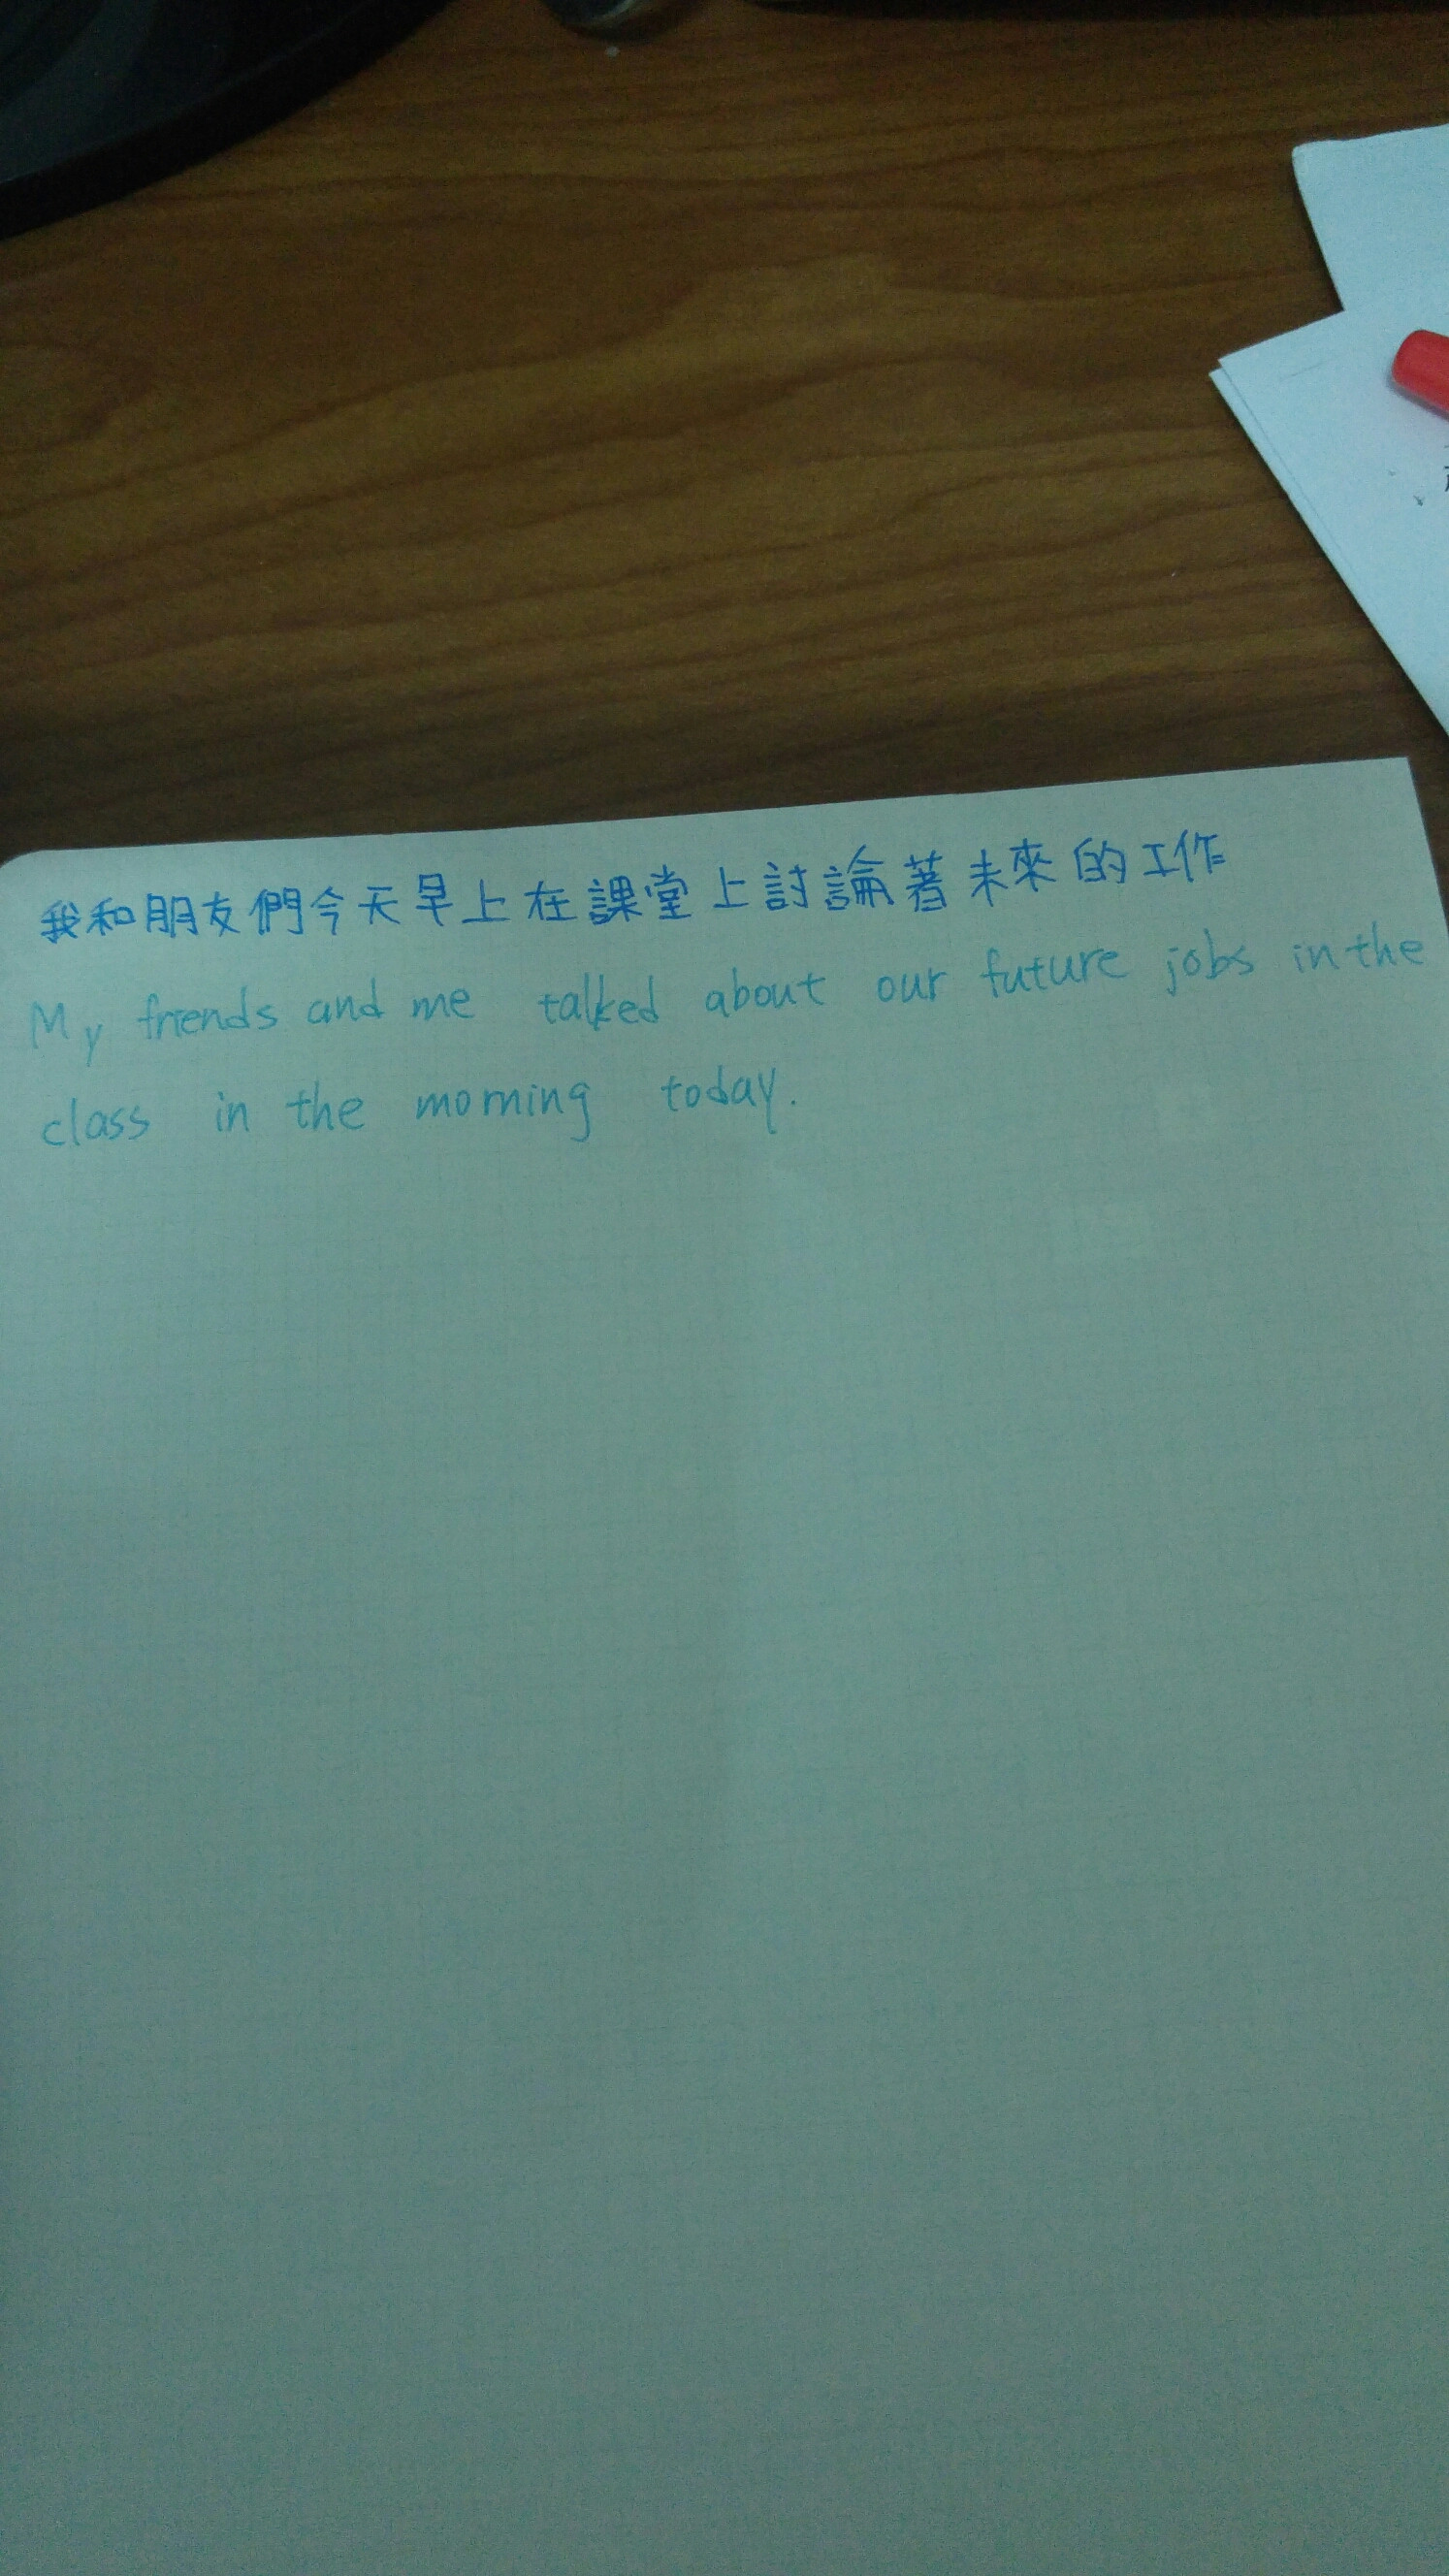 我和朋友們今天早上在課堂上討論著未來的工作
My friends and me talked about our future jobs in the
class in the morning today.